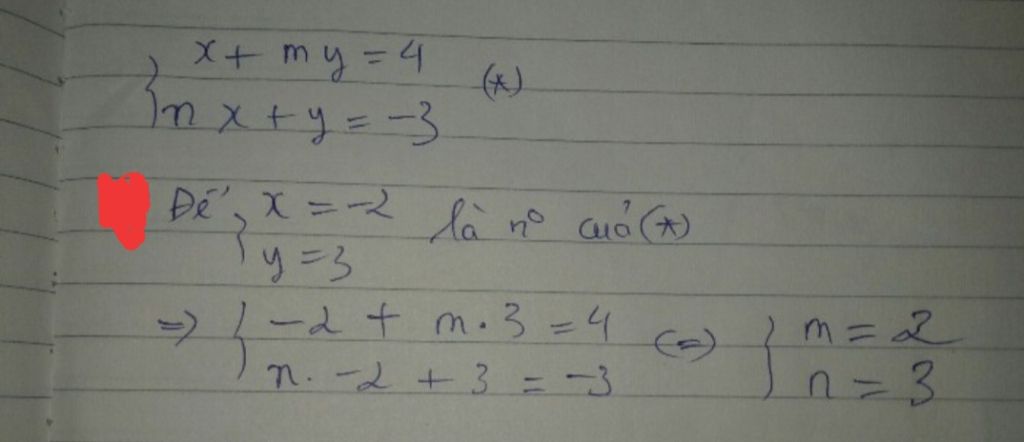 { x + my = 4
{ nx + y = -3 (*)
Để { x = -2
{ y = 3 là nº của (*)
=> { -2 + m.3 = 4 (=) { m = 2
{ n. -2 + 3 = -3 { n = 3